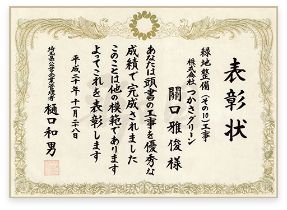 表彰状
緑地整備(その10)工事
株式会社 つかさグリーン
関口雅俊様
あなたは頭書の工事を優秀な
成績で完成されました
このことは他の模範であります
よってこれを表彰します
平成二十年十一月二十八日
埼玉県公営企業管理者
樋口和男